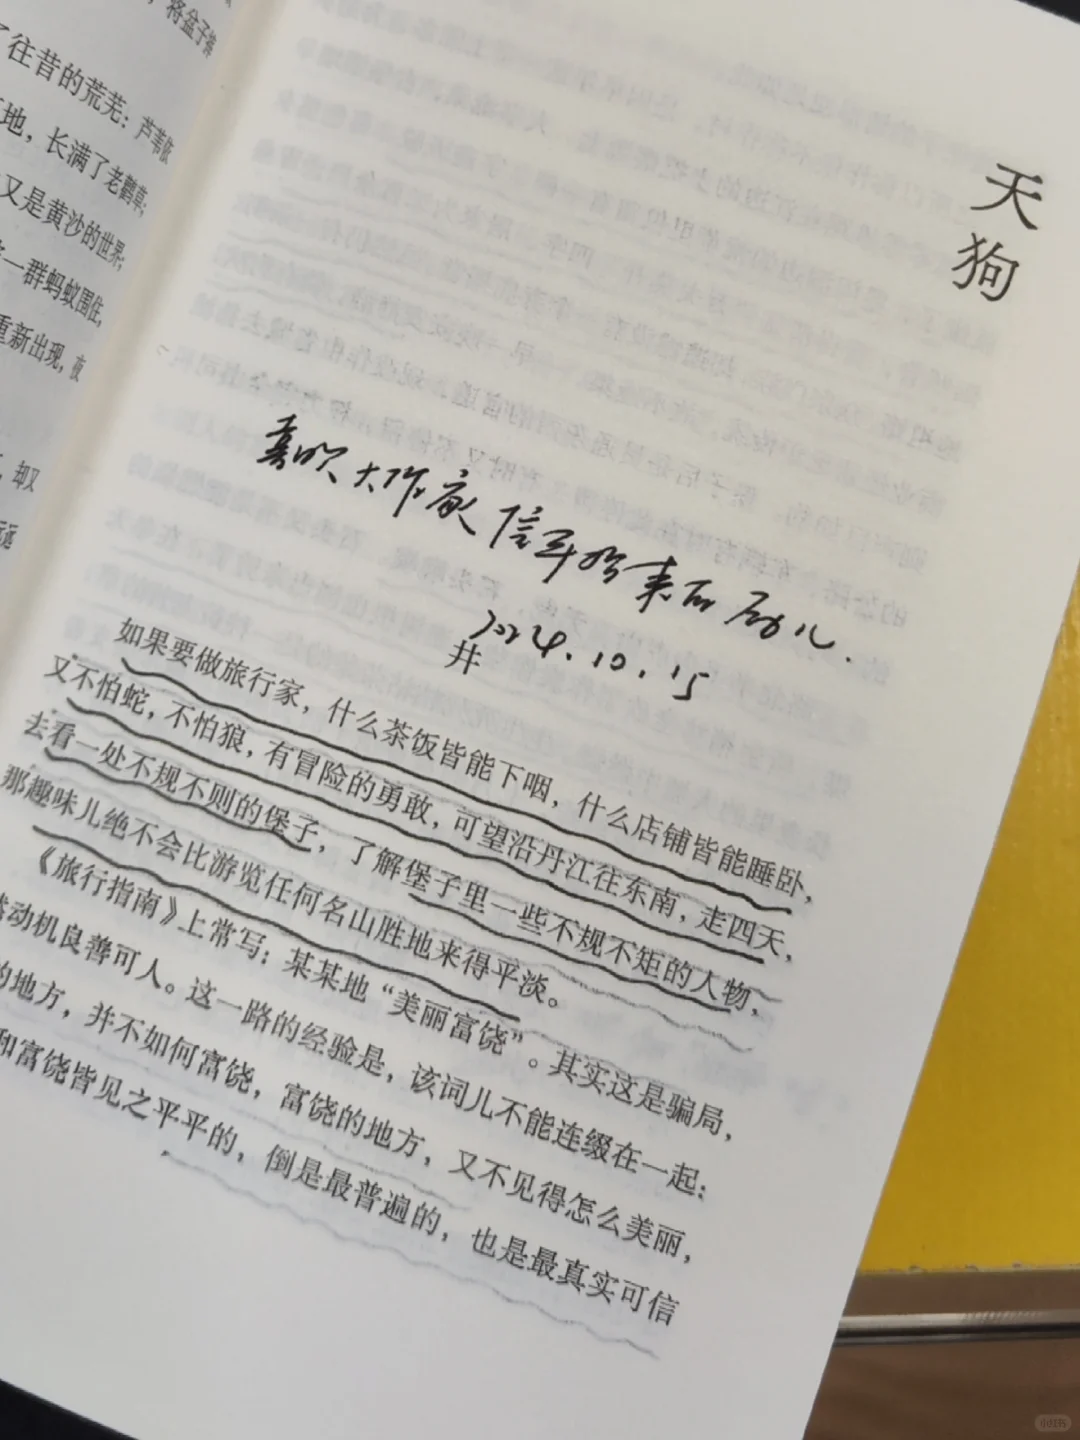 将盆子
了往昔的荒芜：芦苇依
地，长满了老鹳草；
又是黄沙的世界；
一群蚂蚁围住，
重新出现，夜
，却又
远
天狗
喜欢大作家信手拈来
2024.10.15
井
如果要做旅行家，什么茶饭皆能下咽，什么店铺皆能睡卧，
又不怕蛇，不怕狼，有冒险的勇敢，可望沿丹江往东南，走四天，
去看一处不规不则的堡子，了解堡子里一些不规不矩的人物，
那趣味儿绝不会比游览任何名山胜地来得平淡。
《旅行指南》上常写：某某地“美丽富饶”。其实这是骗局，
动机良善可人。这一路的经验是，该词儿不能连缀在一起：
的地方，并不如何富饶，富饶的地方，又不见得怎么美丽，
和富饶皆见之平平的，倒是最普遍的，也是最真实可信